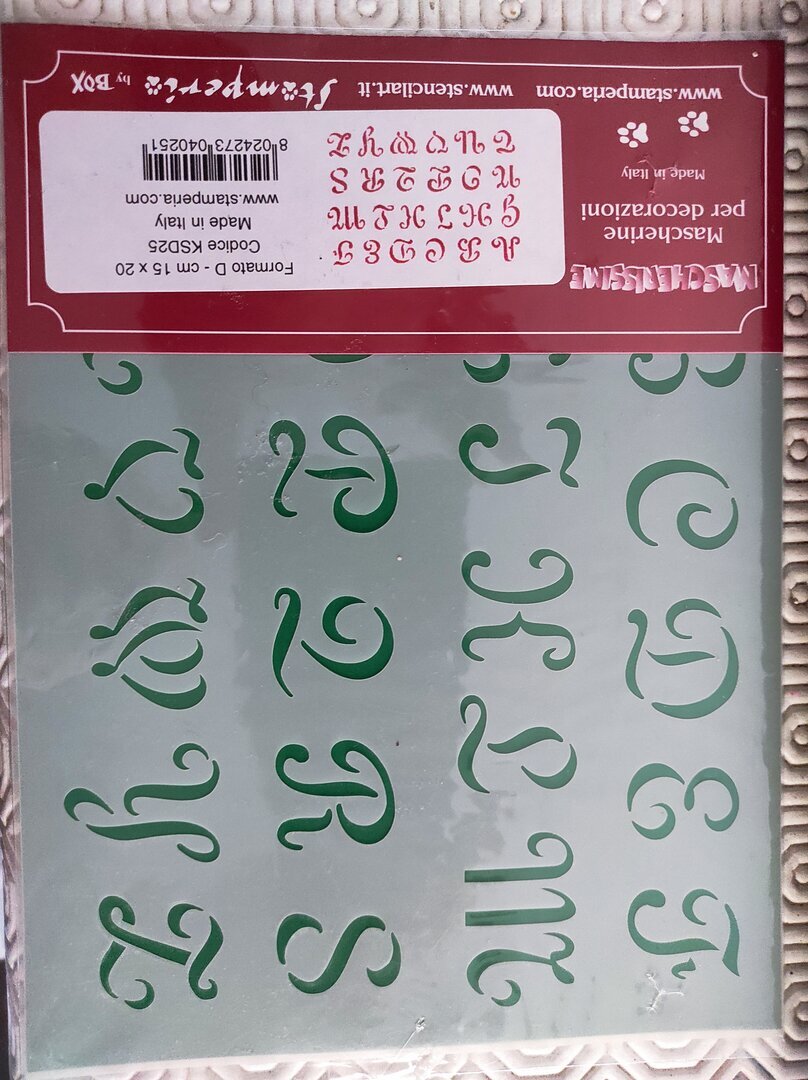 MASCHERISSIME
Mascherine
per decorazioni
Made in Italy
www.stamperia.com
www.stencilart.it
Stamperia by BOX
A B C D E F
G H I K L M
N O P Q R S
T U V W Y Z
Formato D - cm 15 x 20
Codice KSD25
Made in Italy
www.stamperia.com
8 024273 040251
C D E F
I K L M
P Q R S
V W Y Z